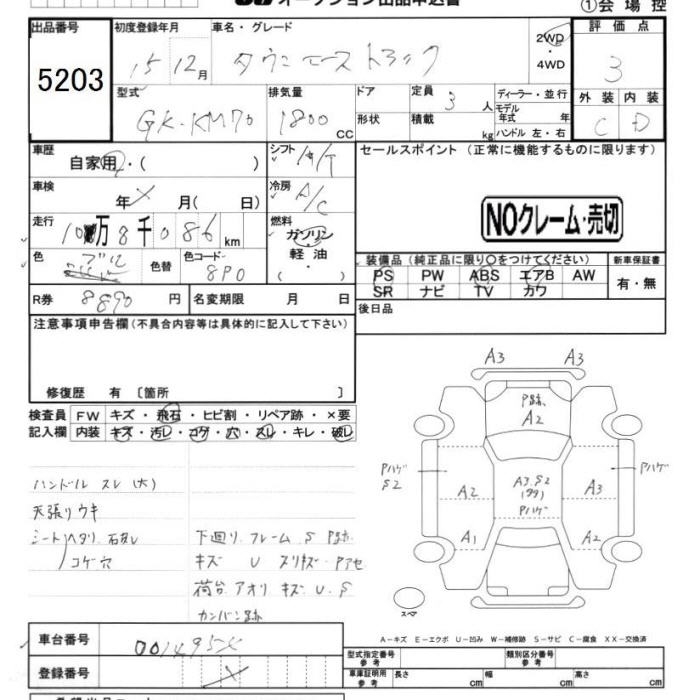 オークション出品申込書
①会場控
出品番号 初度登録年月 車名・グレード 2WD ・ 4WD 評価点
5203 15 12月 タウンエーストラック 3
型式 排気量 ドア 定員 3 人 ディーラー・並行 外装 内装
GK-KM70 1800 CC 形状 積載 kg モデル年式 年 ハンドル 左・右 C D
車歴 自家用・( ) シフト A/T セールスポイント (正常に機能するものに限ります)
車検 年 月( 日) 冷房 A/C
NOクレーム・売切
走行 10万8千086 km 燃料 ガソリン
軽油
( ・ )
色 色替 色コード 8P0
装備品(純正品に限り○をつけてください) 新車保証書
PS PW ABS エアB AW 有・無
SR ナビ TV カワ
R券 8890 円 名変期限 月 日
後日品
注意事項申告欄(不具合内容等は具体的に記入して下さい)
修復歴 有 〔箇所 〕
検査員 FW キズ・飛石・ヒビ割・リペア跡・×要
記入欄 内装 キズ・汚レ・コゲ・穴・スレ・キレ・破レ
ハンドル スレ(大)
天張りウキ
シートヘタリ
コゲ穴
下廻り フレーム S P跡
キズ U スリキズ・Pアセ
荷台アオリ キズ U.S
カンバン跡
A3 A3
P跡
A2
Pハゲ
S2
Pハゲ
A2 A3,S2 A3
Pハゲ
A1 A2
スペア
A-キズ E-エクボ U-凹み W-補修跡 S-サビ C-腐食 XX-交換済
車台番号
登録番号
型式指定番号 参考 類別区分番号 参考
車庫証明用 参考 長さ cm 幅 cm 高さ cm